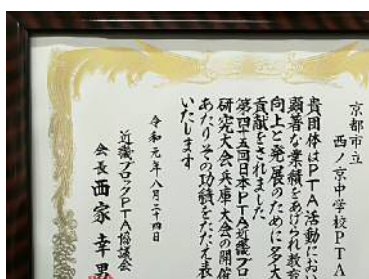 京都市立
西ノ京中学校PTA
貴団体はPTA活動にお
顕著な業績をあげられ教育
向上と発展のために多大
貢献をされました
第四十五回日本PTA近畿ブロ
研究大会兵庫大会の開催
あたりその功績をたたえ表
いたします
令和元年八月二十四日
近畿ブロックPTA協議会
会長 西家幸男